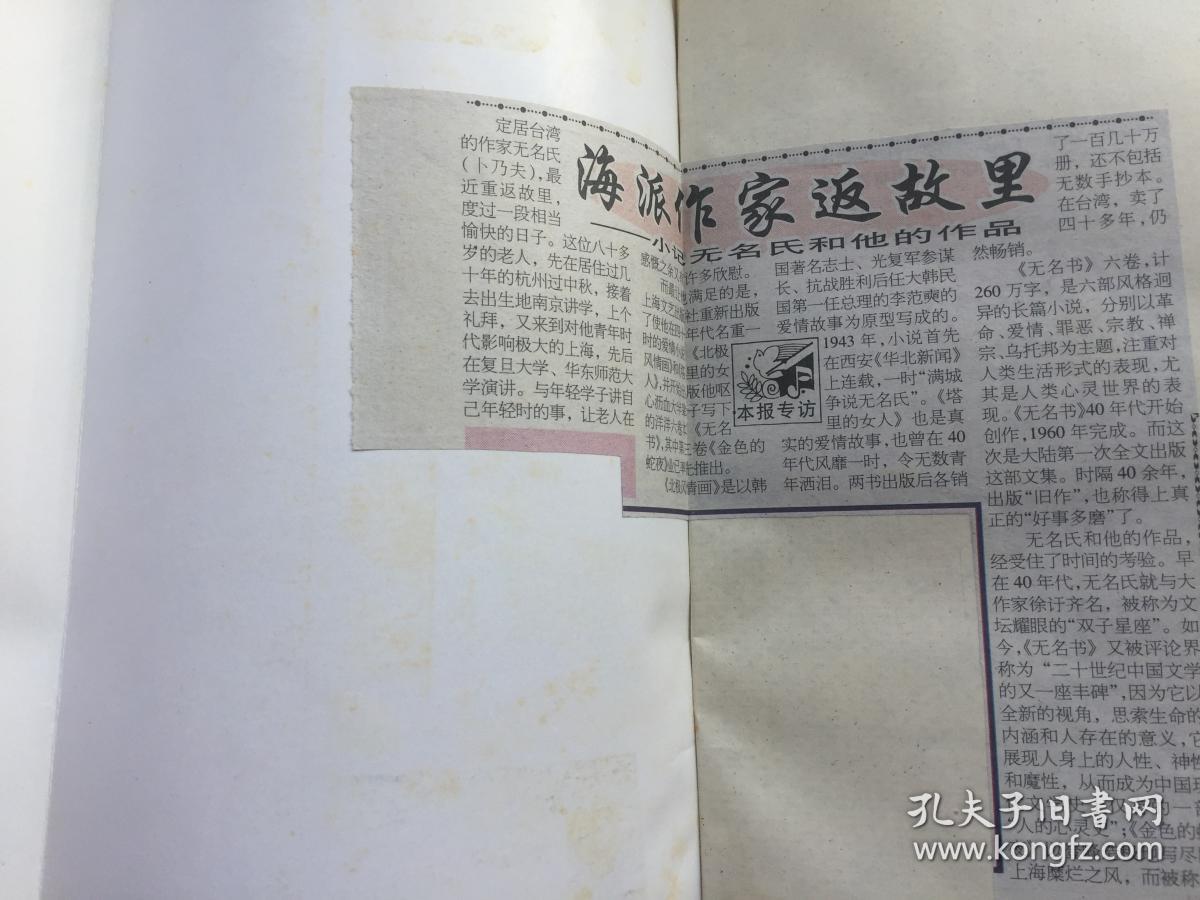 海派作家返故里
——小记无名氏和他的作品
定居台湾
的作家无名氏
(卜乃夫),最
近重返故里,
度过一段相当
愉快的日子。这位八十多
岁的老人,先在居住过几
十年的杭州过中秋,接着
去出生地南京讲学,上个
礼拜,又来到对他青年时
代影响极大的上海,先后
在复旦大学、华东师范大
学演讲。与年轻学子讲自
己年轻时的事,让老人在
感慨之余又有许多欣慰。
而最让他满足的是,
上海文艺出版社重新出版
了使他在四十年代名重一
时的爱情小说《北极
风情画》和《塔里的女
人》,并开始出版他呕
心沥血大半辈子写下
的洋洋六卷本《无名
书》,其中第三卷《金色的
蛇夜》业已率先推出。
《北极风情画》是以韩
国著名志士、光复军参谋
长、抗战胜利后任大韩民
国第一任总理的李范奭的
爱情故事为原型写成的。
1943年,小说首先
在西安《华北新闻》
上连载,一时“满城
争说无名氏”。《塔
里的女人》也是真
实的爱情故事,也曾在40
年代风靡一时,令无数青
年洒泪。两书出版后各销
本报专访
了一百几十万
册,还不包括
无数手抄本。
在台湾,卖了
四十多年,仍
然畅销。
《无名书》六卷,计
260万字,是六部风格迥
异的长篇小说,分别以革
命、爱情、罪恶、宗教、禅
宗、乌托邦为主题,注重对
人类生活形式的表现,尤
其是人类心灵世界的表
现。《无名书》40年代开始
创作,1960年完成。而这
次是大陆第一次全文出版
这部文集。时隔40余年,
出版“旧作”,也称得上真
正的“好事多磨”了。
无名氏和他的作品,
经受住了时间的考验。早
在40年代,无名氏就与大
作家徐讦齐名,被称为文
坛耀眼的“双子星座”。如
今,《无名书》又被评论界
称为“二十世纪中国文学
的又一座丰碑”,因为它以
全新的视角,思索生命的
内涵和人存在的意义,它
展现人身上的人性、神性
和魔性,从而成为中国现
的一部
人的心灵史”;《金色的蛇
写尽
上海糜烂之风,而被称
孔夫子旧书网
www.kongfz.com